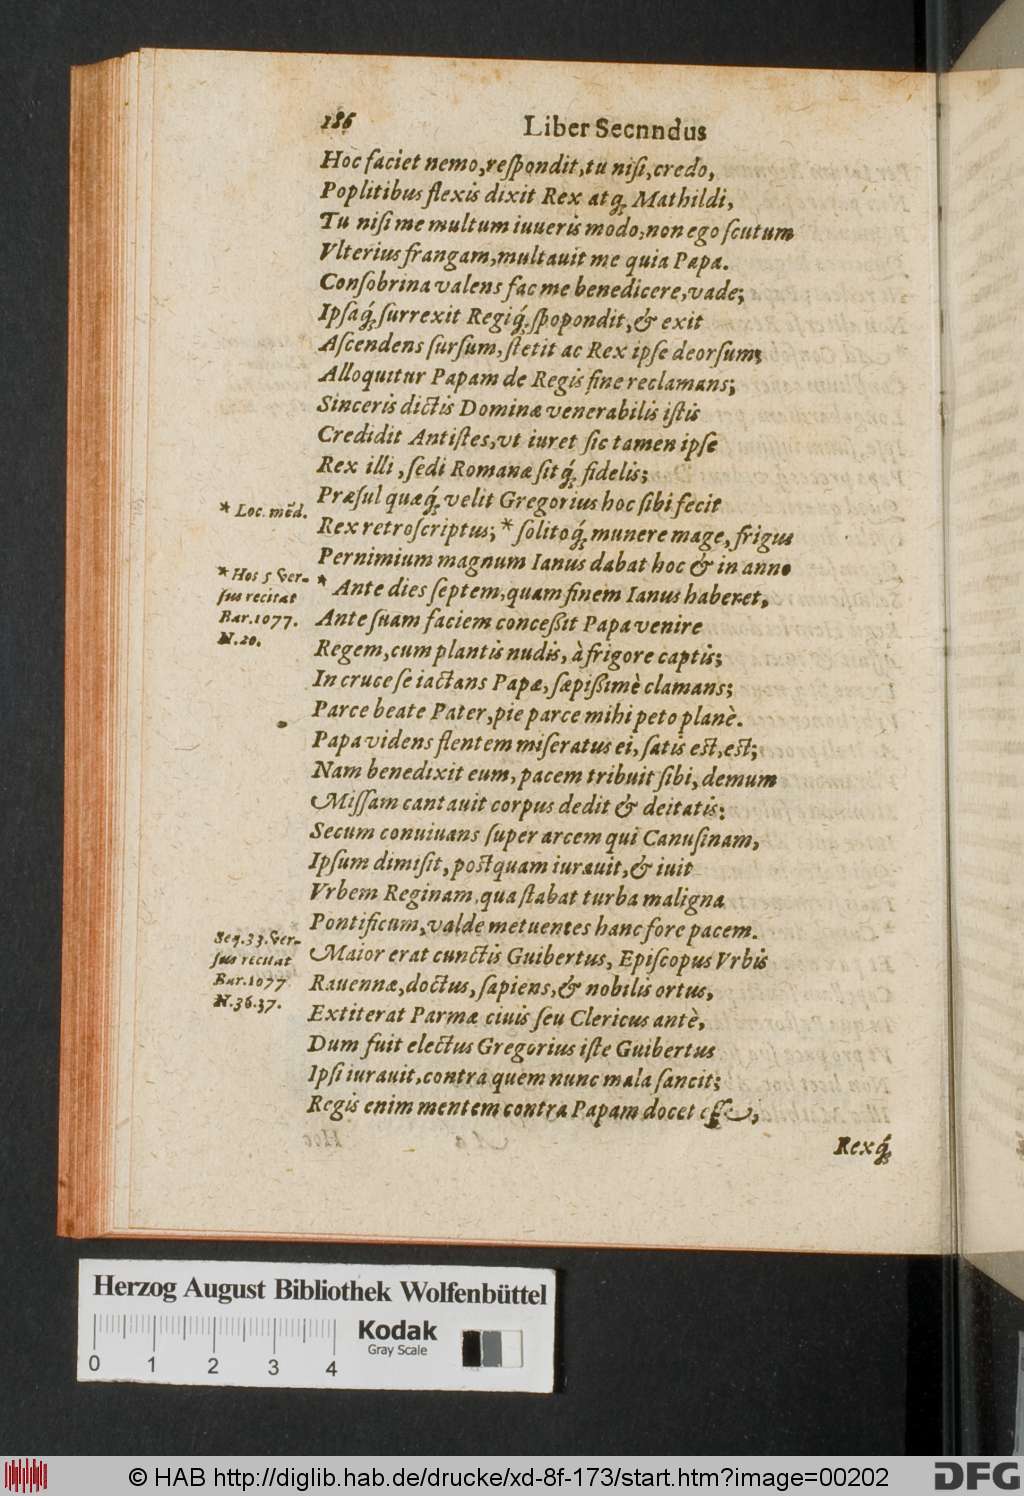 186 Liber Secnndus
Hoc faciet nemo, reſpondit, tu niſi, credo,
Poplitibus flexis dixit Rex atq́; Mathildi,
Tu niſi me multum iuueris modo, non ego ſcutum
Vlterius frangam, multauit me quia Papa.
Conſobrina valens fac me benedicere, vade;
Ipſaq́; ſurrexit Regiq́; ſpopondit, & exit
Aſcendens ſurſum, ſtetit ac Rex ipſe deorſum;
Alloquitur Papam de Regis fine reclamans;
Sinceris dictis Dominæ venerabilis iſtis
Credidit Antiſtes, vt iuret ſic tamen ipſe
Rex illi, ſedi Romanæ ſitq́; fidelis;
Præſul quæq́; velit Gregorius hoc ſibi fecit
* Loc. mẽd.
Rex retroſcriptus; * ſolitoq́; munere mage, frigus
Pernimium magnum Ianus dabat hoc & in anno
* Hos 5 ver-
ſus recitat
Bar. 1077.
N. 20.
* Ante dies ſeptem, quam finem Ianus haberet,
Ante ſuam faciem conceßit Papa venire
Regem, cum plantis nudis, à frigore captis;
In cruce ſe iactans Papæ, ſæpißimè clamans;
Parce beate Pater, pie parce mihi peto planè.
Papa videns flentem miſeratus ei, ſatis est, est;
Nam benedixit eum, pacem tribuit ſibi, demum
Miſſam cantauit corpus dedit & deitatis;
Secum conuiuans ſuper arcem qui Canuſinam,
Ipſum dimiſit, postquam iurauit, & iuit
Vrbem Reginam, qua ſtabat turba maligna
Pontificum, valde metuentes hanc fore pacem.
Seq. 33. ver-
ſus recitat
Bar. 1077
N. 36. 37.
Maior erat cunctis Guibertus, Epiſcopus Vrbis
Rauennæ, doctus, ſapiens, & nobilis ortus,
Extiterat Parmæ ciuis ſeu Clericus antè,
Dum fuit electus Gregorius iſte Guibertus
Ipſi iurauit, contra quem nunc mala ſancit;
Regis enim mentem contra Papam docet eſſe,
Rexq́;
Herzog August Bibliothek Wolfenbüttel
Kodak
Gray Scale
0 1 2 3 4
© HAB http://diglib.hab.de/drucke/xd-8f-173/start.htm?image=00202
DFG